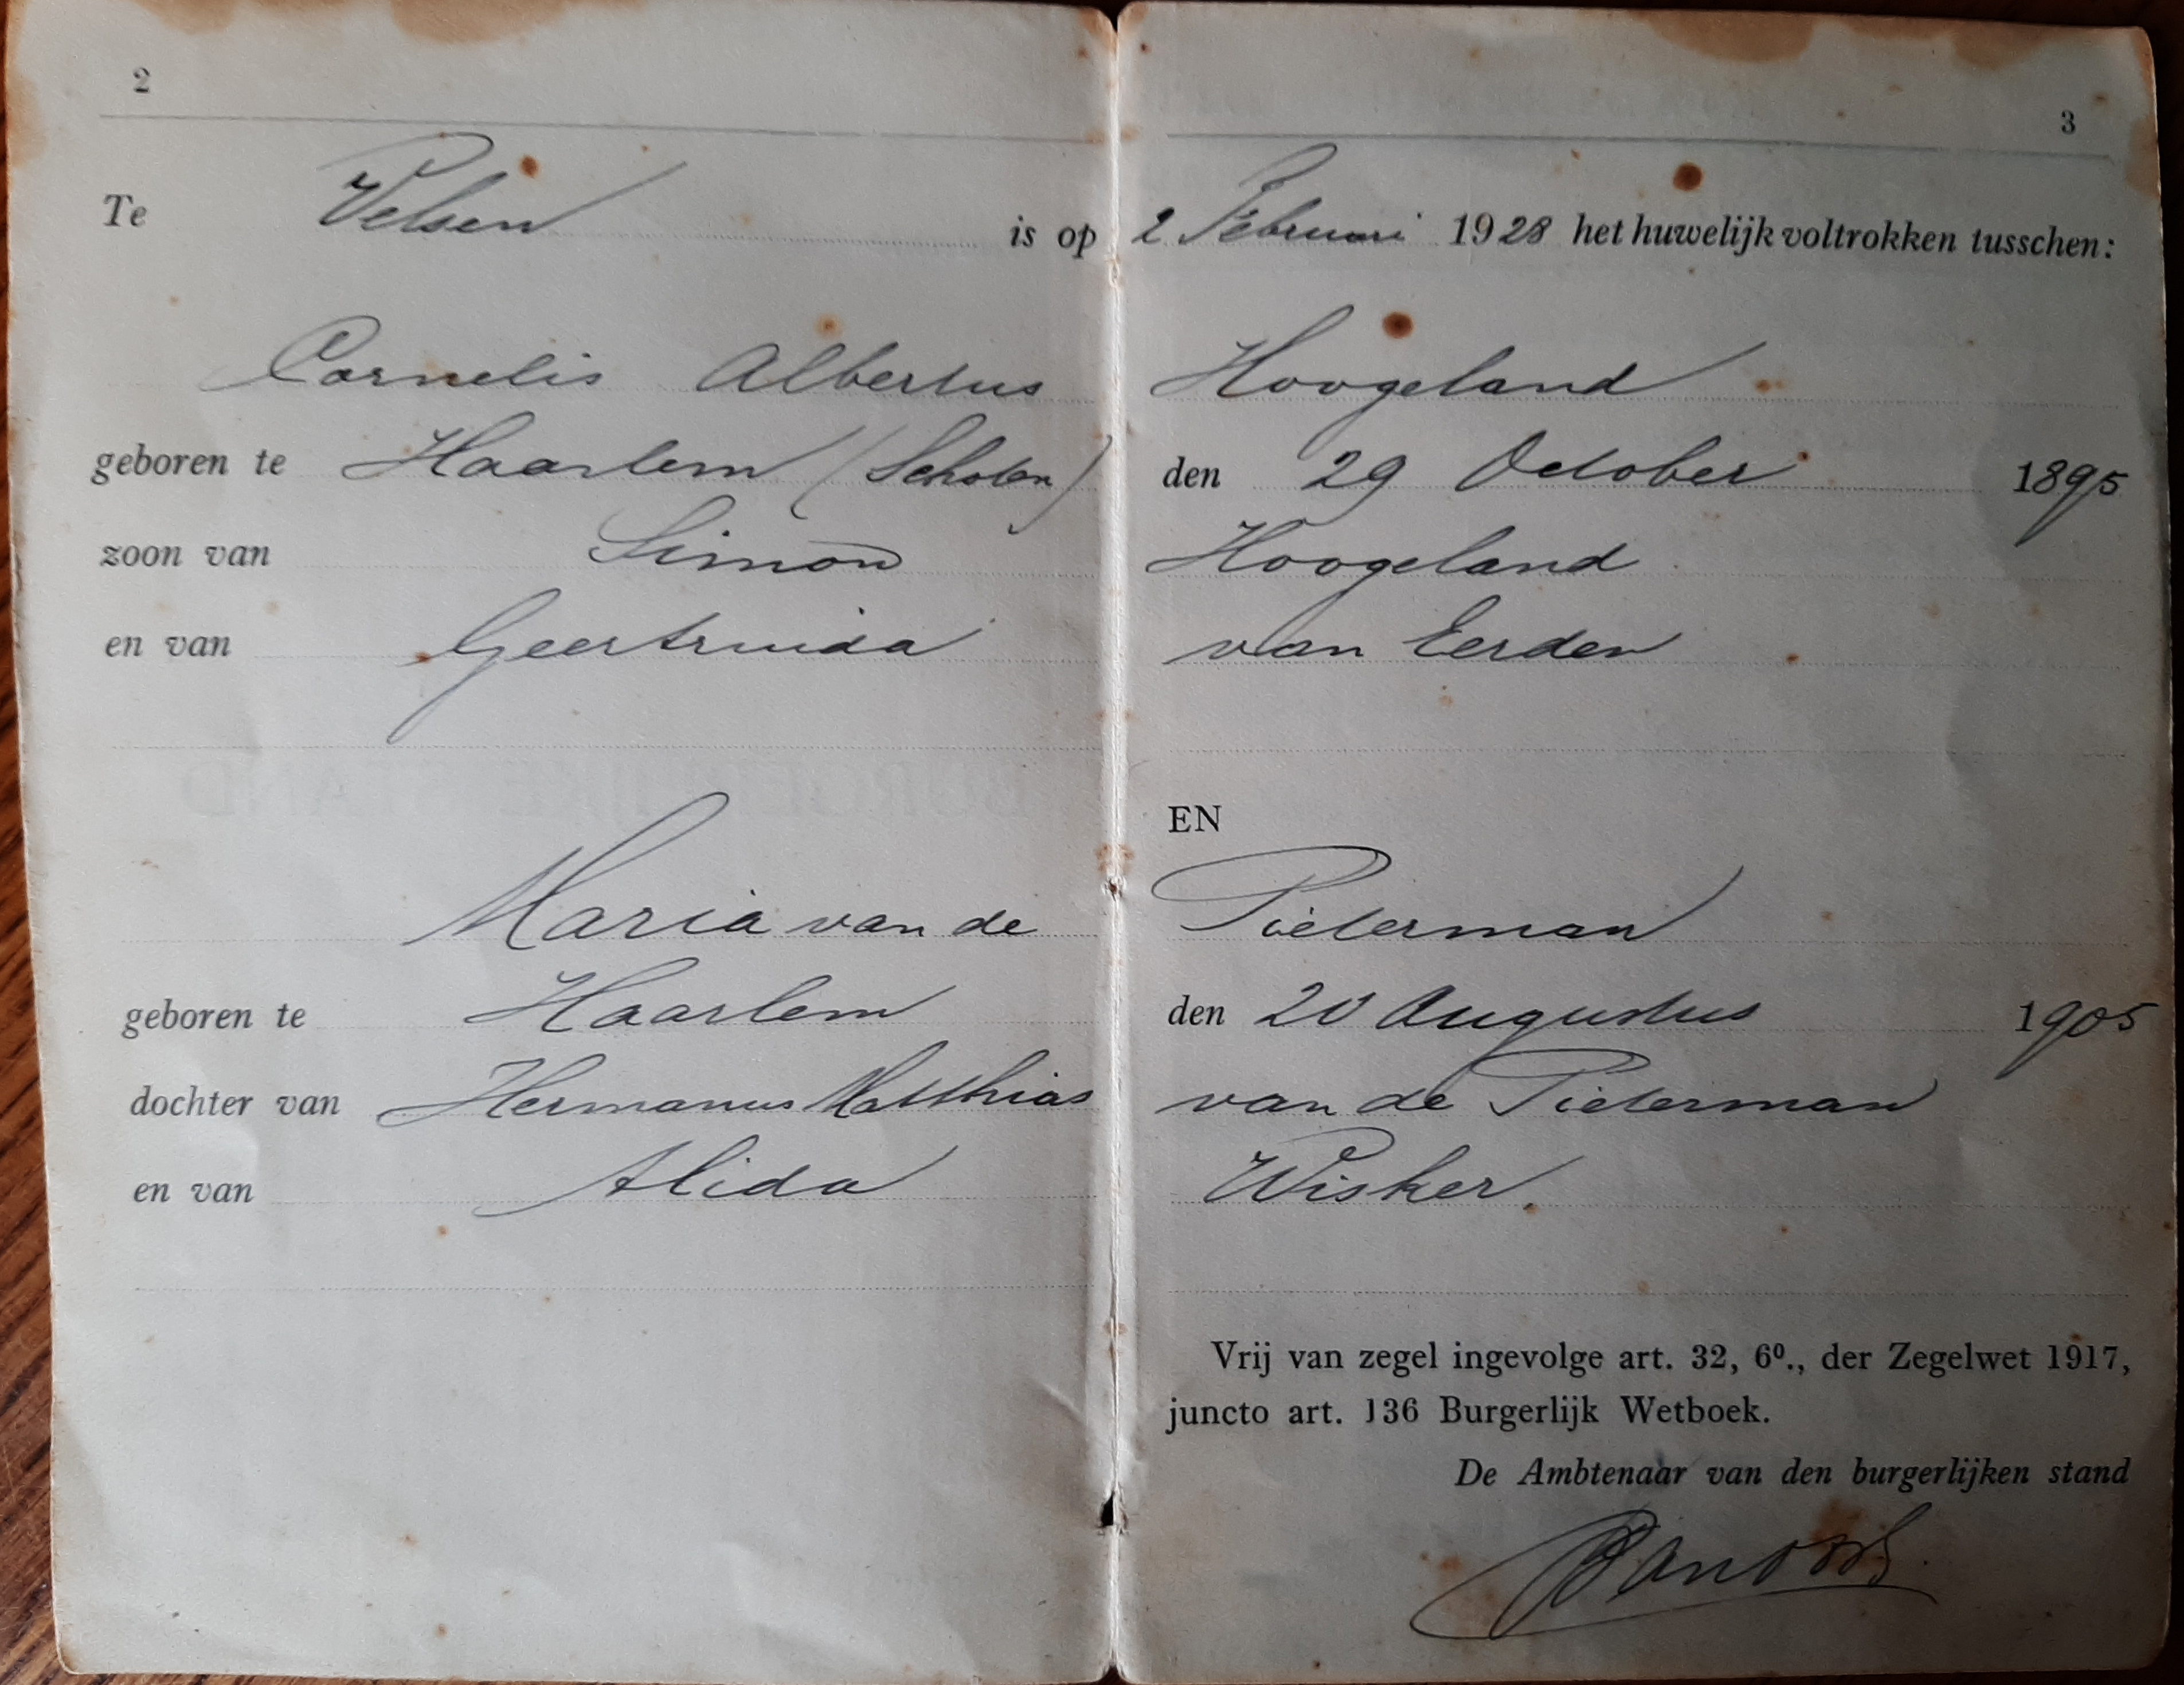 2
3
Te Velsen is op 2 Februari 1928 het huwelijk voltrokken tusschen:
Cornelis Albertus Hoogeland
geboren te Haarlem (Schoten) den 29 October 1895
zoon van Simon Hoogeland
en van Geertruida van Eerden
EN
Maria van de Pieterman
geboren te Haarlem den 20 Augustus 1905
dochter van Hermanus Matthias van de Pieterman
en van Alida Wisker.
Vrij van zegel ingevolge art. 32, 6⁰., der Zegelwet 1917,
juncto art. 136 Burgerlijk Wetboek.
De Ambtenaar van den burgerlijken stand